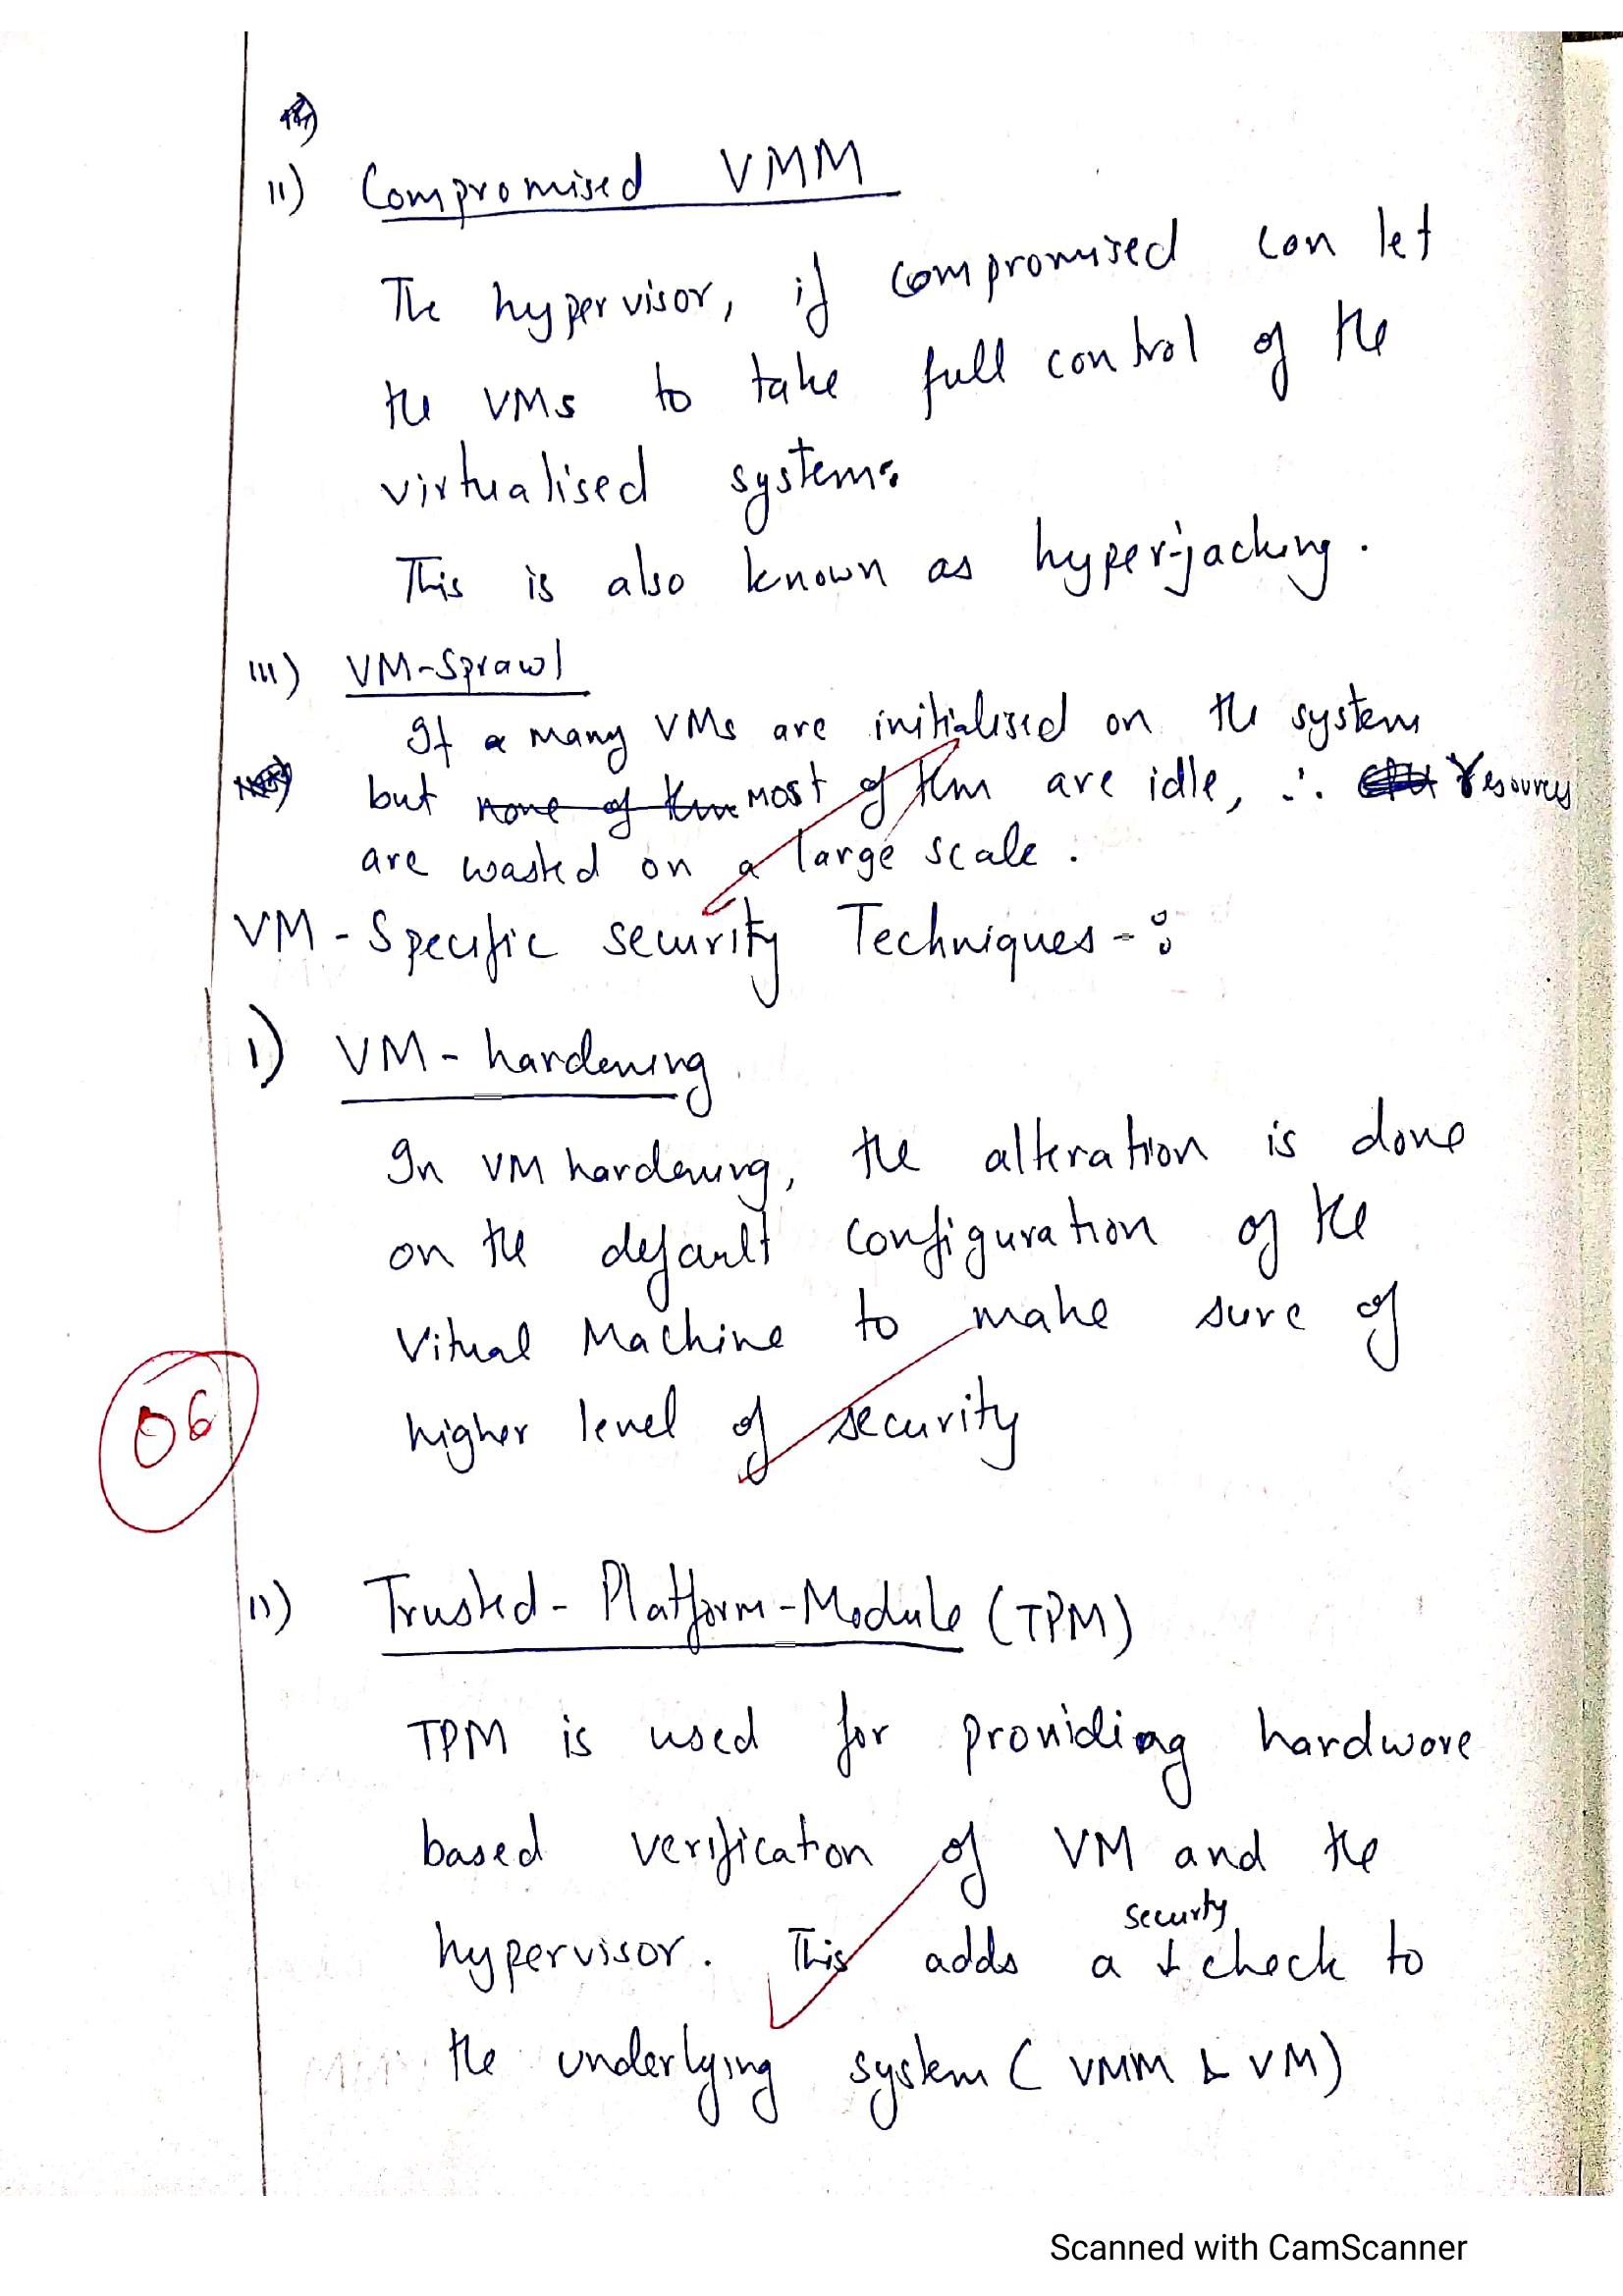 II) Compromised VMM
The hypervisor, if compromised can let
the VMs to take full control of the
virtualised system.
This is also known as hyper-jacking.
III) VM-Sprawl
If a many VMs are initialised on the system
but none of them most of them are idle, ∴ resources
are wasted on a large scale.
VM-Specific security Techniques-:
I) VM-hardening
In VM hardening, the alteration is done
on the default configuration of the
Vitual Machine to make sure of
higher level of security
06
II) Trusted-Platform-Module (TPM)
TPM is used for providing hardware
based verification of VM and the
security
hypervisor. This adds a check to
the underlying system (VMM & VM)
Scanned with CamScanner